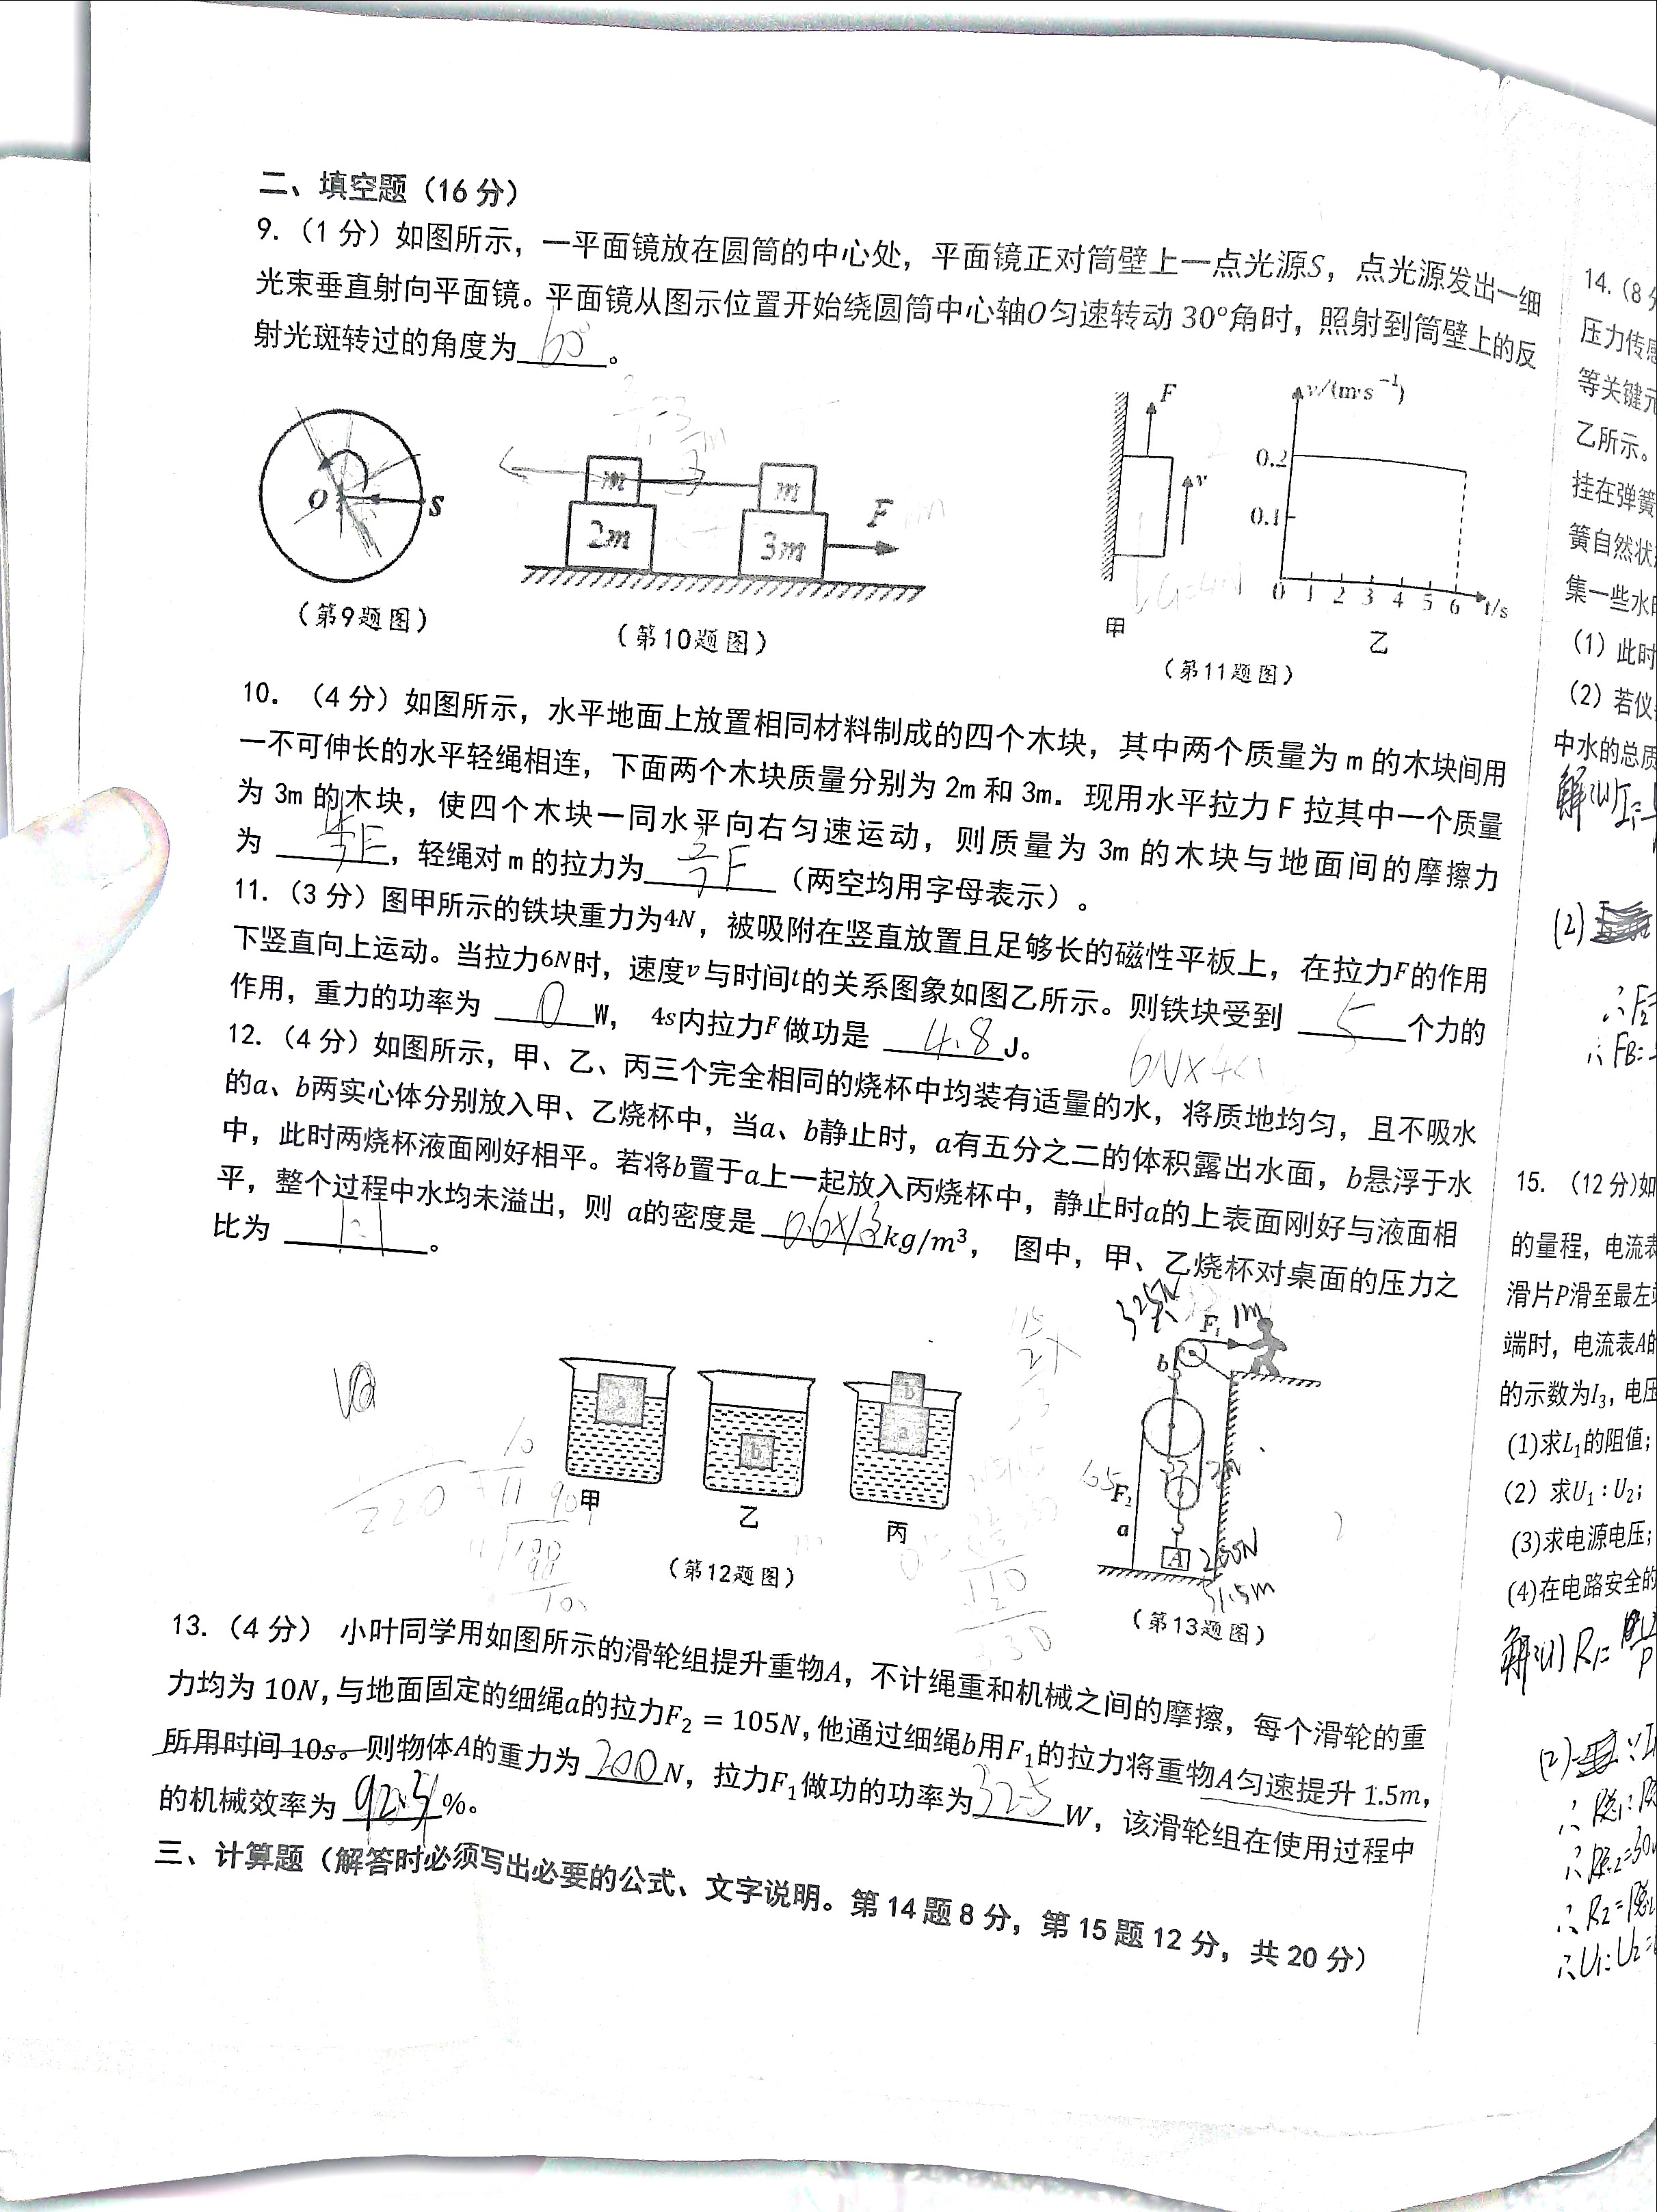 二、填空题（16 分）
9.（1 分）如图所示，一平面镜放在圆筒的中心处，平面镜正对筒壁上一点光源S，点光源发出一细
光束垂直射向平面镜。平面镜从图示位置开始绕圆筒中心轴O匀速转动 30°角时，照射到筒壁上的反
射光斑转过的角度为 60° 。
O S
（第9题图）
m m
2m 3m F
（第10题图）
F
v
甲
v/(m·s⁻¹)
0.2
0.1
0 1 2 3 4 5 6 t/s
乙
G=4N
（第11题图）
10. （4 分）如图所示，水平地面上放置相同材料制成的四个木块，其中两个质量为 m 的木块间用
一不可伸长的水平轻绳相连，下面两个木块质量分别为 2m 和 3m．现用水平拉力 F 拉其中一个质量
为 3m 的木块，使四个木块一同水平向右匀速运动，则质量为 3m 的木块与地面间的摩擦力
为 F，轻绳对 m 的拉力为 3/7 F （两空均用字母表示）。
11.（3 分）图甲所示的铁块重力为4N，被吸附在竖直放置且足够长的磁性平板上，在拉力F的作用
下竖直向上运动。当拉力6N时，速度v与时间t的关系图象如图乙所示。则铁块受到 5 个力的
作用，重力的功率为 0 W， 4s内拉力F做功是 4.8 J。
12.（4 分）如图所示，甲、乙、丙三个完全相同的烧杯中均装有适量的水，将质地均匀，且不吸水
的a、b两实心体分别放入甲、乙烧杯中，当a、b静止时，a有五分之二的体积露出水面，b悬浮于水
中，此时两烧杯液面刚好相平。若将b置于a上一起放入丙烧杯中，静止时a的上表面刚好与液面相
平，整个过程中水均未溢出，则 a的密度是 0.6×10³ kg/m³， 图中，甲、乙烧杯对桌面的压力之
比为 1:1 。
a
甲
b
乙
b
a
丙
（第12题图）
325N
F₁ 1m
b
65
F₂
a
A 200N
1.5m
（第13题图）
13.（4 分） 小叶同学用如图所示的滑轮组提升重物A，不计绳重和机械之间的摩擦，每个滑轮的重
力均为 10N，与地面固定的细绳a的拉力F₂ = 105N，他通过细绳b用F₁的拉力将重物A匀速提升 1.5m，
所用时间 10s。则物体A的重力为 200 N，拉力F₁做功的功率为 32.5 W，该滑轮组在使用过程中
的机械效率为 92.3 %。
三、计算题（解答时必须写出必要的公式、文字说明。第 14 题 8 分，第 15 题 12 分，共 20 分）
14.（8
压力传
等关键元
乙所示。
挂在弹簧
簧自然状
集一些水
（1）此时
（2）若仪
中水的总质
(2)
15. （12 分）如
的量程，电流表
滑片P滑至最左
端时，电流表A的
的示数为I₃，电压
(1)求L₁的阻值；
（2）求U₁：U₂；
(3)求电源电压；
(4)在电路安全的